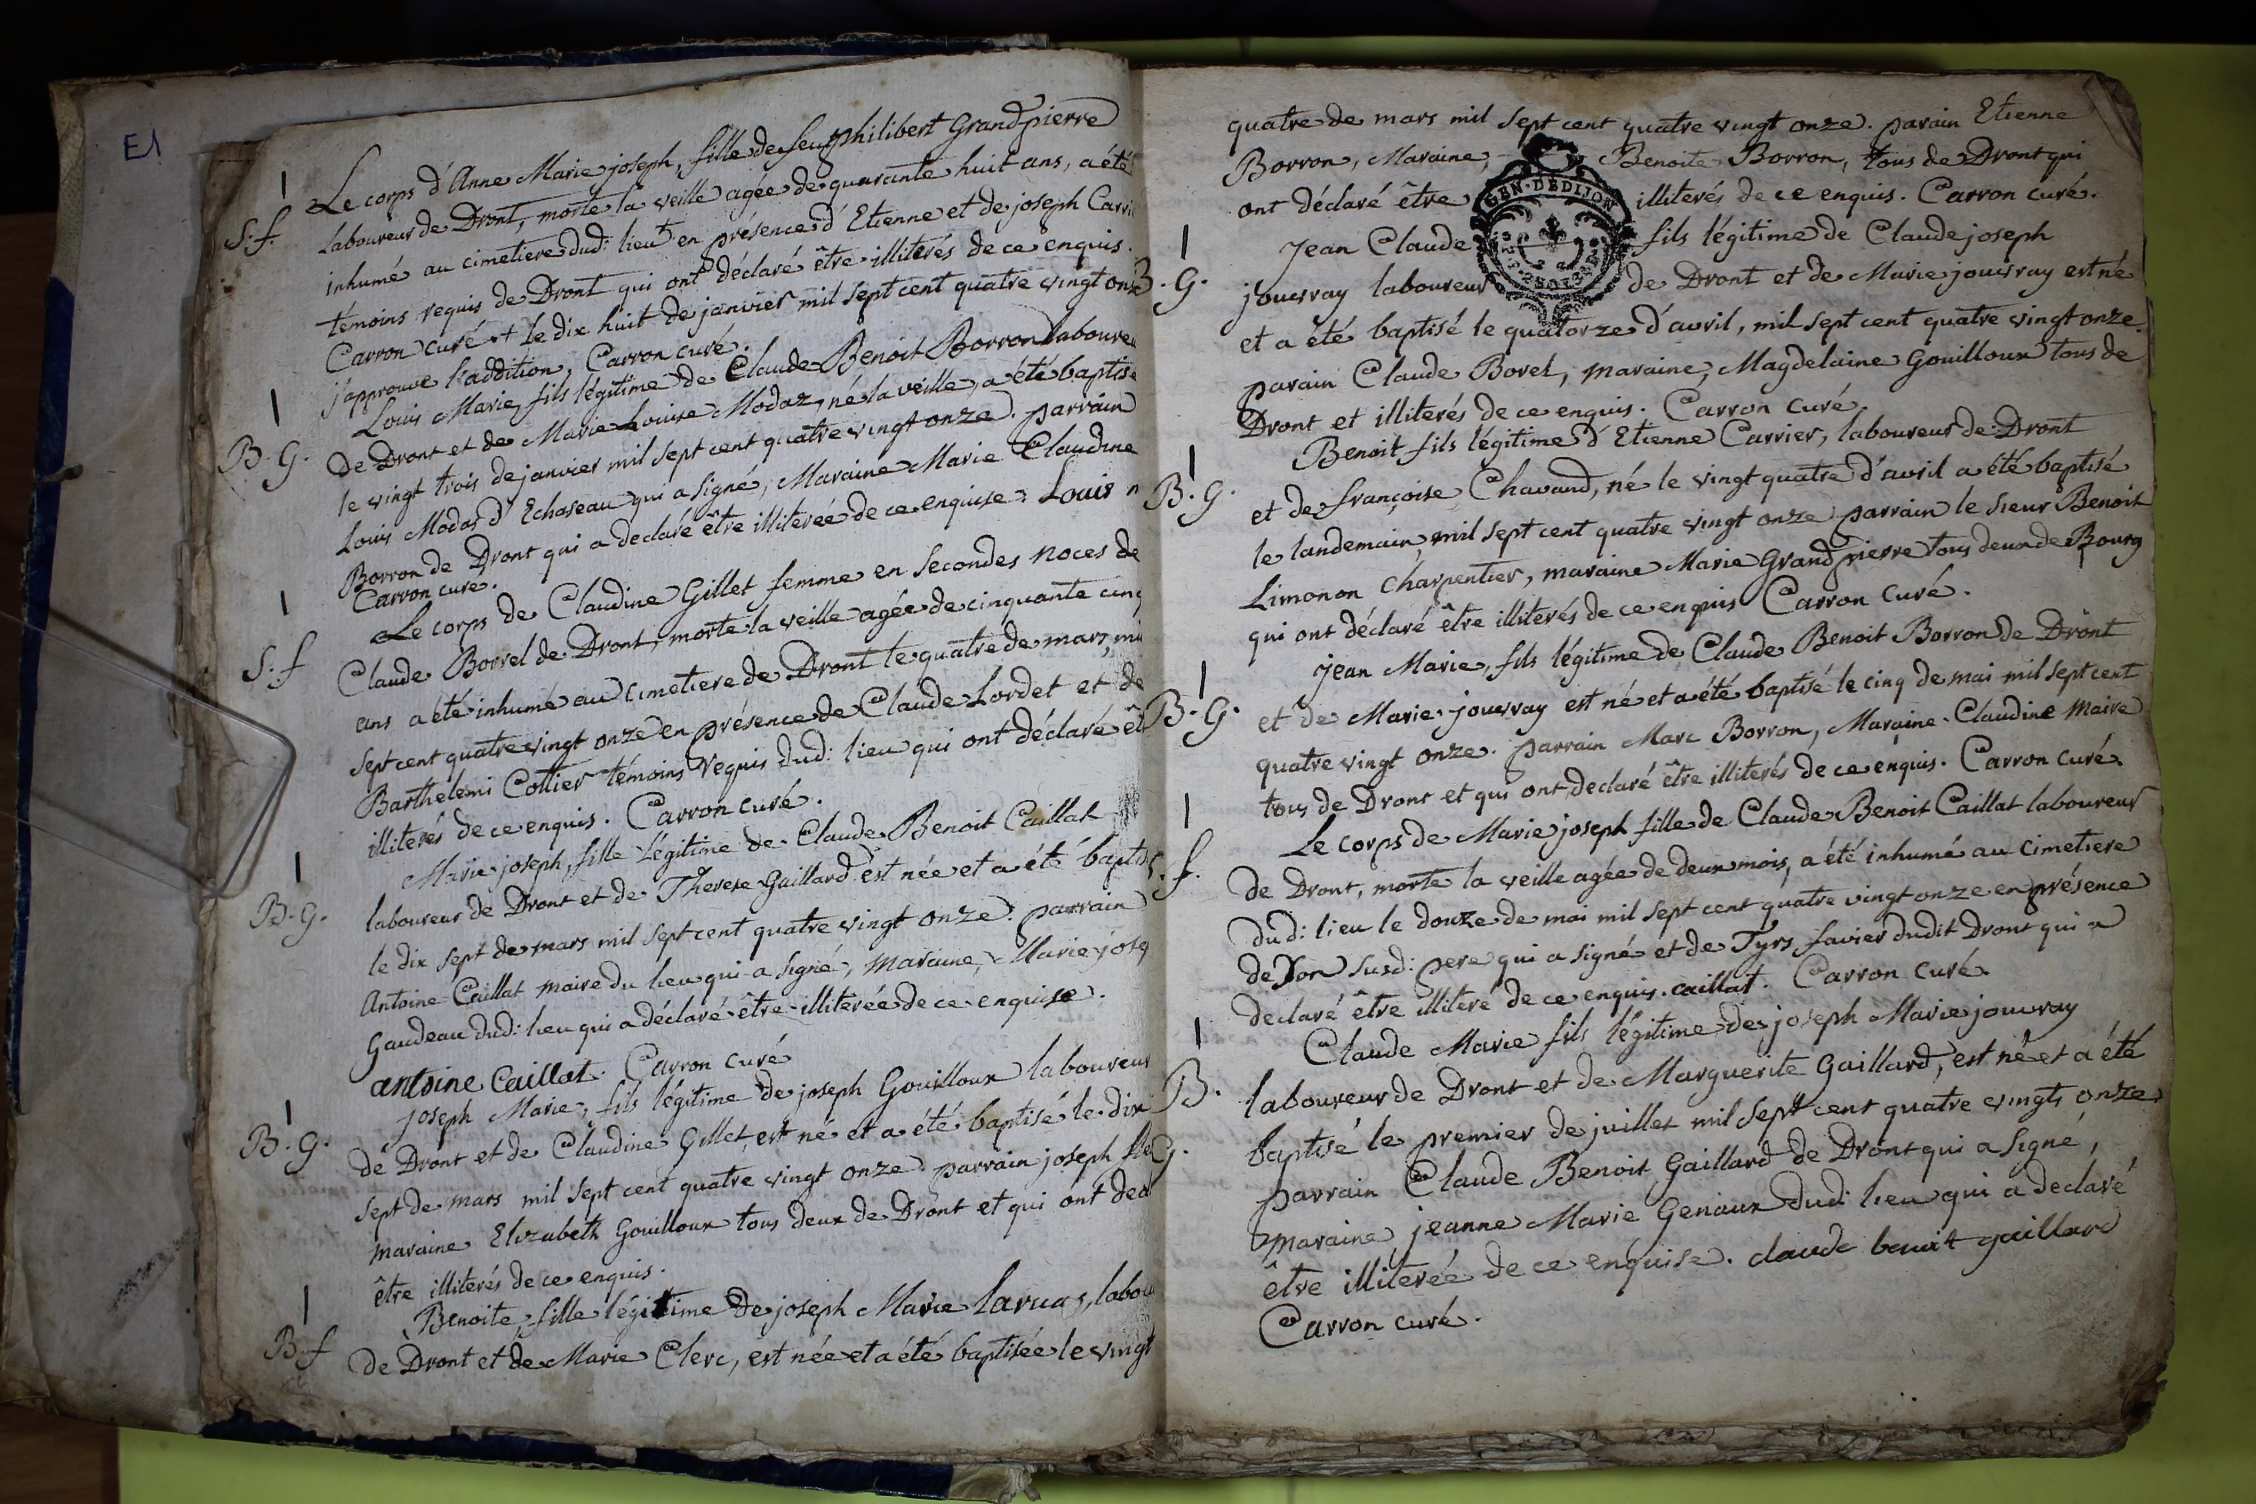 E1
Le corps d'Anne Marie joseph, fille de feu philibert Grandpierre
S. f. laboureur de Dront, morte la veille agée de quarante huit ans, a été
inhumé au cimetiere dud: lieu en présence d'Etienne et de joseph
témoins requis de Dront qui ont déclaré être illiterés de ce enquis.
Carron curé + le dix huit de janvier mil sept cent quatre vingt onze
j'approuve l'addition, Carron curé.
Louis Marie, fils légitime de Claude Benoit Borron laboureu
B. G. de Dront et de Marie Louise Modaz, né la veille, a été baptisé
le vingt trois de janvier mil sept cent quatre vingt onze. parrain
Louis Modas d'Echaseau qui a signé, Maraine Marie Claudine
Borron de Dront qui a declaré être illiterée de ce enquise. Louis
Carron curé.
Le corps de Claudine Gillet femme en secondes noces de
S. f Claude Borrel de Dront, morte la veille agée de cinquante cinq
ans a été inhumé au cimetiere de Dront le quatre de mars, mil
sept cent quatre vingt onze en présence de Claude Lordet et de
Barthelemi Cottier témoins requis dud: lieu qui ont déclaré êt
illiterés de ce enquis. Carron curé.
Marie joseph, fille légitime de Claude Benoit Caillat
B. G. laboureur de Dront et de Therese Gaillard est née et a été baptis
le dix sept de mars mil sept cent quatre vingt onze. parrain
Antoine Caillat maire du lieu qui a signé, maraine, Marie jose
Gaudeau dud: lieu qui a déclaré être illiterée de ce enquise.
antoine Caillat. Carron curé
joseph Marie, fils légitime de joseph Gouilloux laboureur
B. G. de Dront et de Claudine Gillet, est né et a été baptisé le dix
sept de mars mil sept cent quatre vingt onze. parrain joseph
maraine Elizabeth Gouilloux tous deux de Dront et qui ont decl
être illiterés de ce enquis.
Benoite, fille légitime de joseph Marie Laruaz, labou
B. f de Dront et de Marie Clerc, est née et a été baptisée le vingt
quatre de mars mil sept cent quatre vingt onze. parain Etienne
Borron, Maraine, Benoite Borron, tous de Dront qui
ont déclaré être illiterés de ce enquis. Carron curé.
GEN. DE DIJON
Jean Claude fils légitime de Claude joseph
B. G. jouvray laboureur de Dront et de Marie jouvray est né
et a été baptisé le quatorze d'avril, mil sept cent quatre vingt onze.
parain Claude Borel, maraine, Magdelaine Gouilloux tous de
Dront et illiterés de ce enquis. Carron curé.
Benoit fils légitime d'Etienne Carrier, laboureur de Dront
B. G. et de françoise Chavand, né le vingt quatre d'avril a été baptisé
le landemain, mil sept cent quatre vingt onze parrain le sieur Benoit
Limonon charpentier, maraine Marie Grandpierre tous deux de Bourg
qui ont déclaré être illiterés de ce enquis Carron curé.
jean Marie, fils légitime de Claude Benoit Borron de Dront
B. G. et de Marie jouvray est né et a été baptisé le cinq de mai mil sept cent
quatre vingt onze. parrain Marc Borron, Maraine Claudine Maire
tous de Dront et qui ont declaré être illiterés de ce enquis. Carron curé.
Le corps de Marie joseph fille de Claude Benoit Caillat laboureur
S. f. de Dront, morte la veille agée de deux mois, a été inhumé au cimetiere
dud: lieu le douze de mai mil sept cent quatre vingt onze en présence
de son susd: pere qui a signé et de Tyrs favier dudit Dront qui a
declaré être illiteré de ce enquis. caillat. Carron curé.
Claude Marie fils légitime de joseph Marie jouvray
B. laboureur de Dront et de Marguerite Gaillard, est né et a été
G. baptisé le premier de juillet mil sept cent quatre vingts onze
parrain Claude Benoit Gaillard de Dront qui a signé,
maraine jeanne Marie Genaux dud: lieu qui a declaré
être illiterée de ce enquise. claude benoit gaillard
Carron curé.